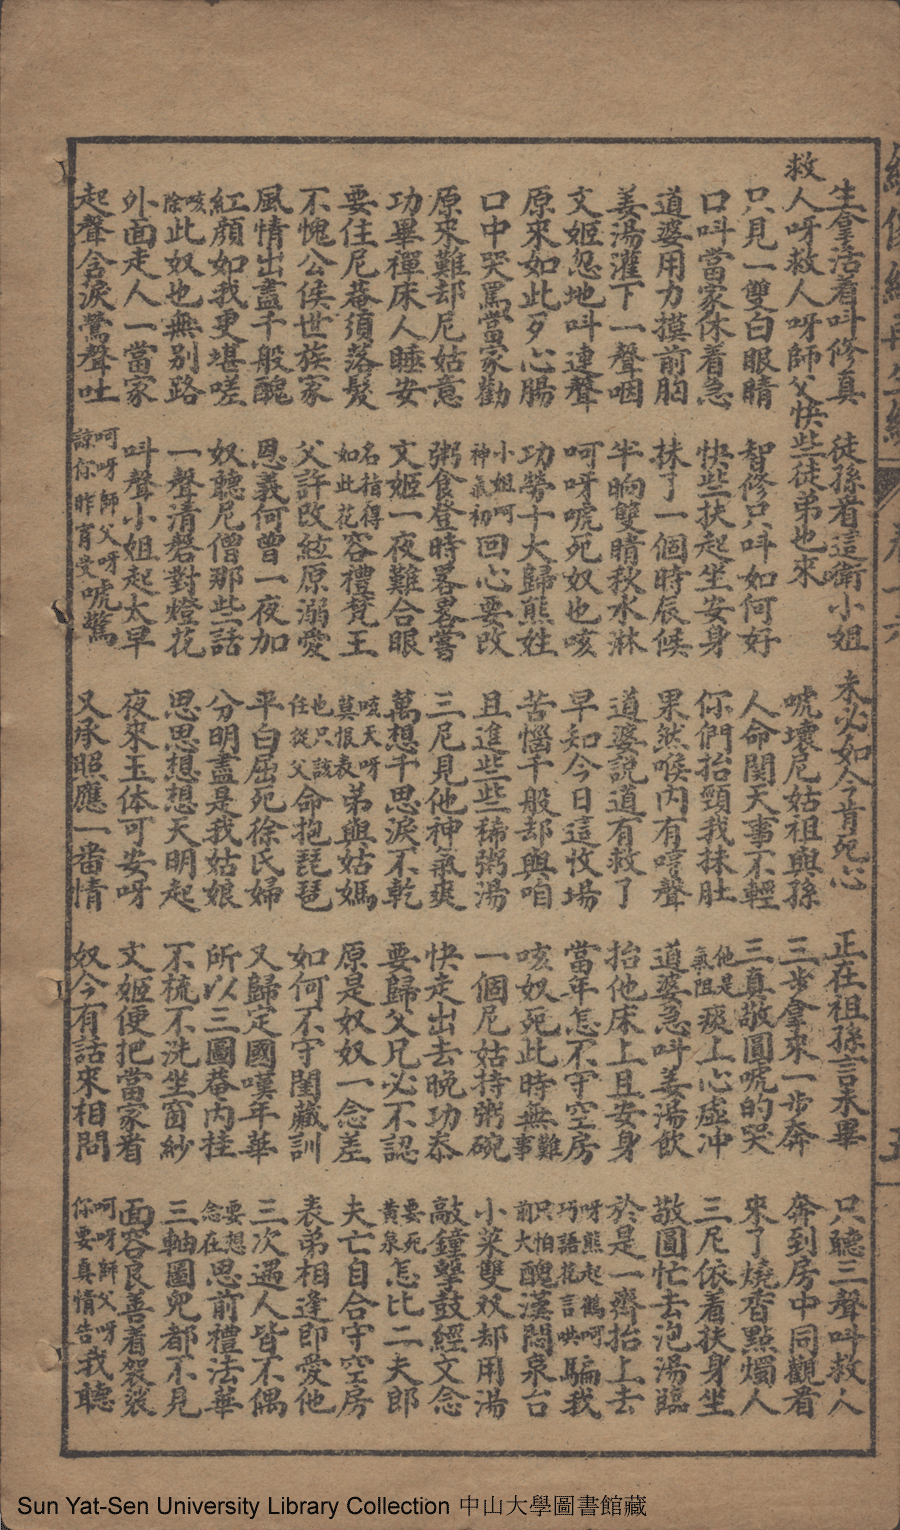 生拿活着呌修真 徒孫看這衛小姐 未必如今肯死心 正在祖孫言未畢 只聽三聲呌救人
救人呀救人呀師父快些徒弟也來 唬壞尼姑祖與孫 三步拿來一步奔 奔到房中同觀看
只見一雙白眼睛 智修只呌如何好 人命関天事不輕 三真敬圓唬的哭 來了燒香點燭人
口呌當家休着急 快些扶起坐安身 你們抬頸我抹肚 他是氣阻痰上心虛冲 三尼依着扶身坐
道婆用力摸前胸 抹了一個時辰候 果然喉内有聲 道婆急呌姜湯飲 敬圓忙去泡湯臨
姜湯灌下一聲咽 半晌雙睛秋水淋 道婆說道有救了 抬他床上且安身 於是一齊抬上去
文姬忽地呌連聲 呵呀唬死奴也咳 早知今日這收塲 當年怎不守空房 呀熊起鶴呵巧語花言哄騙我
原來如此歹心腸 功勞十大歸熊姓 苦惱千般却與咱 咳奴死此時無難事 只怕前大醜漢悶泉台
口中哭罵當家勸 小姐呵神氣初回心要改 且進些些稀粥湯 一個尼姑持粥碗 小菜雙双却用湯
原來難却尼姑意 粥食登時畧畧嘗 三尼見他神氣爽 快走出去晚功忝 敲鐘擊鼓經文念
功畢禪床人睡安 文姬一夜難合眼 萬想千思淚不乾 要歸父兄必不認 要死黃泉怎比二夫郎
要住尼菴須落髮 名指得如此花容禮梵王 咳天呀莫恨表弟與姑媽 原是奴奴一念差 夫亡自合守空房
不愧公侯世族家 父許改紭原溺愛 也只該任從父命抱琵琶 如何不守閨藏訓 表弟相逢即愛他
風情出盡千般醜 恩義何曾一夜加 平白屈死徐氏婦 又歸定國嘆年華 三次遇人皆不偶
紅顔如我更堪嗟 奴聽尼僧那些話 分明盡是我姑娘 所以三圖菴内挂 要想念在思前禮法華
咳除此奴也無别路 一聲清磬對燈花 思思想想天明起 不梳不洗坐窗紗 三軸圖兒都不見
外面走人一當家 呌聲小姐起太早 夜來玉体可安呀 文姬便把當家看 面容良善着袈裟
起聲含淚鶯聲吐 呵呀師父呀諒你昨宵受唬驚 又承照應一番情 奴今有話來相問 呵呀師父呀你要真情告我聽
Sun Yat-Sen University Library Collection 中山大學圖書館藏